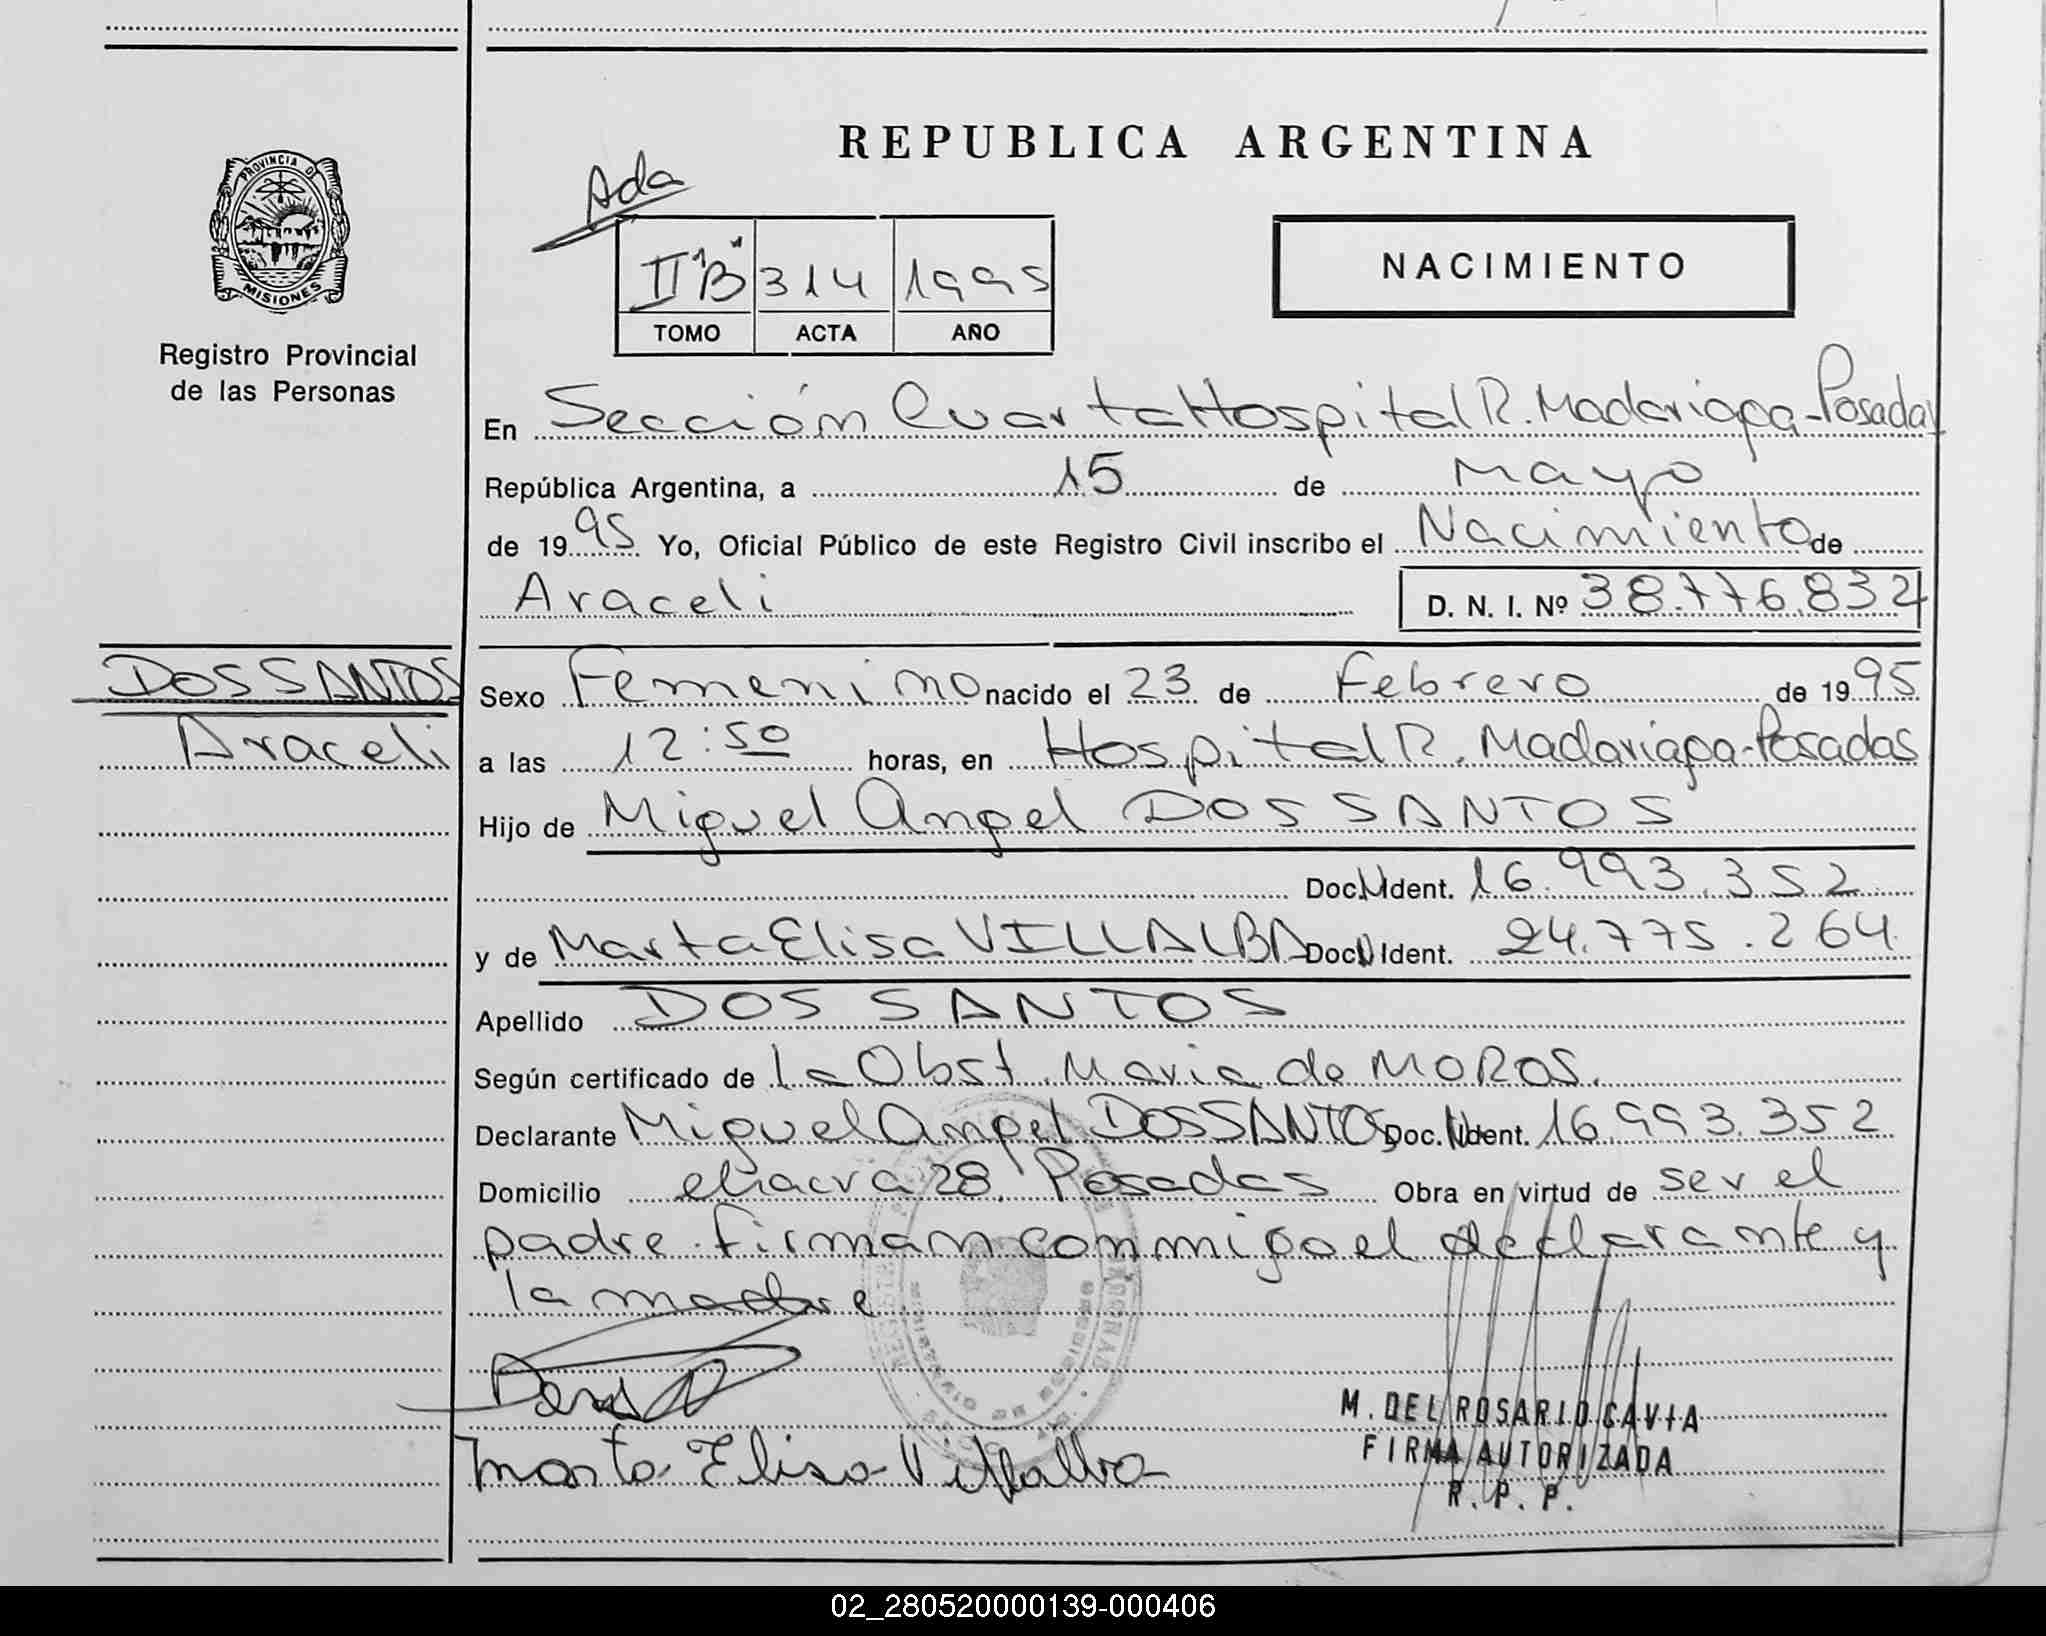 REPUBLICA ARGENTINA
Ada
PROVINCIA DE
MISIONES
Registro Provincial
de las Personas
II "B" 314 1995
TOMO ACTA AÑO
NACIMIENTO
En Sección Cuarta Hospital R. Madariaga - Posadas
República Argentina, a 15 de Mayo
de 1995 Yo, Oficial Público de este Registro Civil inscribo el Nacimiento de
Araceli D. N. I. Nº 38.776.832
DOS SANTOS
Araceli
Sexo Femenino nacido el 23 de Febrero de 1995
a las 12:50 horas, en Hospital R. Madariaga - Posadas
Hijo de Miguel Angel DOS SANTOS
Doc. N Ident. 16.993.352
y de Marta Elisa VILLALBA Doc. N Ident. 24.775.264
Apellido DOS SANTOS
Según certificado de la Obst. Maria de MOROS.
Declarante Miguel Angel DOS SANTOS Doc. N Ident. 16.993.352
Domicilio chacra 28. Posadas Obra en virtud de ser el
padre. firman conmigo el declarante y
la madre
Marta Elisa Villalba
M. DEL ROSARIO GAVIA
FIRMA AUTORIZADA
R. P. P.
02_280520000139-000406